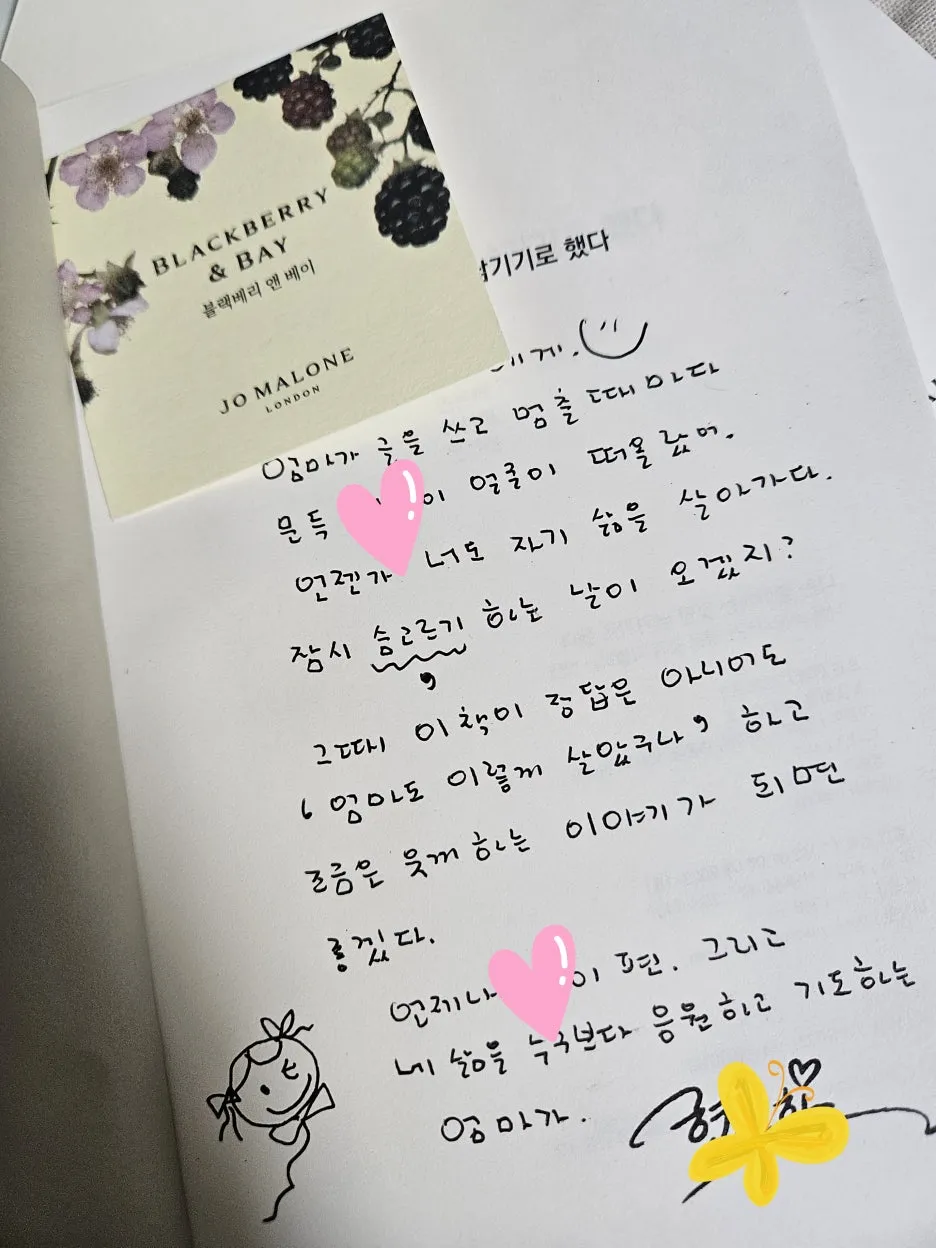 BLACKBERRY
& BAY
블랙베리 앤 베이
JO MALONE
LONDON
기기로 했다
에게.
엄마가 글을 쓰고 멈출 때마다
문득 이 얼굴이 떠올랐어.
언젠가 너도 자기 삶을 살아가다.
잠시 숨고르기 하는 날이 오겠지?
,
그때 이 책이 정답은 아니어도
'엄마도 이렇게 살았구나' 하고
조금은 웃게 하는 이야기가 되면
좋겠다.
언제나 이 편. 그리고
네 삶을 누구보다 응원하고 기도하는
엄마가.